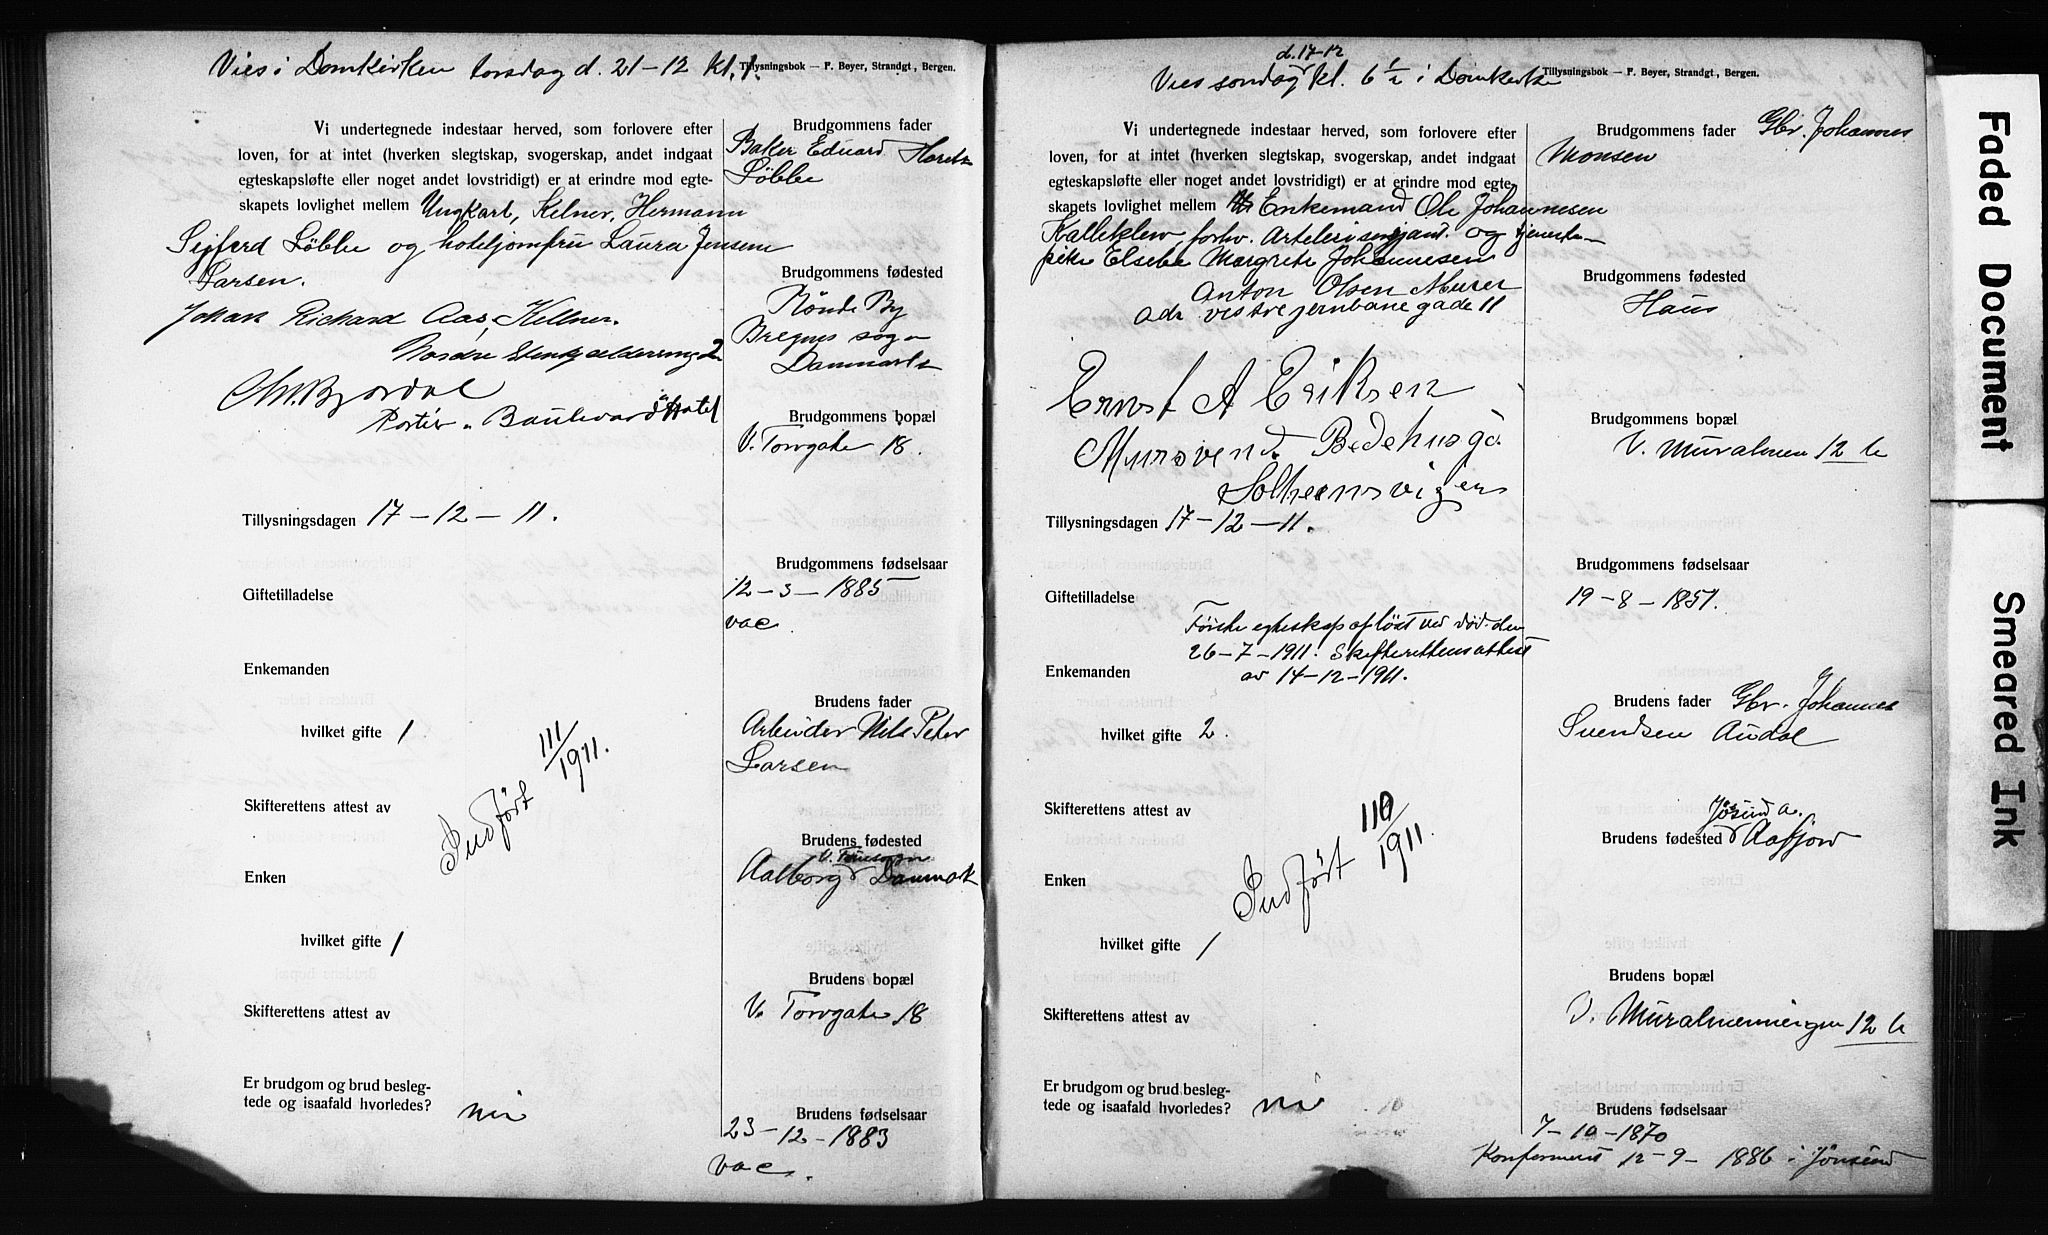 Vies i Domkirken torsdag d. 21-12 kl. 1.
Tillysningsbok — F. Beyer, Strandgt., Bergen.
Vi undertegnede indestaar herved, som forlovere efter
loven, for at intet (hverken slegtskap, svogerskap, andet indgaat
egteskapsløfte eller noget andet lovstridigt) er at erindre mod egte-
skapets lovlighet mellem Ungkarl, Kelner, Hermann
Sigfard Löbbe og hoteljomfru Laura Jensene
Larsen.
Johan Richard Aas, Kellner.
Nordre 2
Chr. Bjordal
Portier Boulevard Hotel
Tillysningsdagen 17-12-11.
Giftetilladelse
Enkemanden
hvilket gifte 1
Indført 111/1911.
Skifterettens attest av
Enken
hvilket gifte 1
Skifterettens attest av
Er brudgom og brud besleg-
tede og isaafald hvorledes? nei
Brudgommens fader
Baker Eduard
Löbbe
Brudgommens fødested
Rönde By
Bregnes sogn
Danmark
Brudgommens bopæl
V. Torvgate 18.
Brudgommens fødselsaar
12-3-1885
vac.
Brudens fader
Arbeider Nils Peter
Larsen
Brudens fødested
Aalborg Danmark
Brudens bopæl
V. Torvgate 18
Brudens fødselsaar
23-12-1883
vac.
d. 17-12
Vies søndag kl. 6 1/2 i Domkirken
Tillysningsbok — F. Beyer, Strandgt., Bergen.
Vi undertegnede indestaar herved, som forlovere efter
loven, for at intet (hverken slegtskap, svogerskap, andet indgaat
egteskapsløfte eller noget andet lovstridigt) er at erindre mod egte-
skapets lovlighet mellem Enkemand Ole Johannesen
Kalleklev forhv. Artelerisergant og tjeneste-
pike Elsebe Margrete Johannesen
Anton Olsen Murer
adr vestre jernbanegade 11
Ernst A Eriksen
Mursvend. Bedehusga
Solheimsvigen
Tillysningsdagen 17-12-11.
Giftetilladelse
Første egteskap opløst ved død den
26-7-1911. Skifterettens attest
av 14-12-1911.
Enkemanden
hvilket gifte 2.
Indført 110/1911.
Skifterettens attest av
Enken
hvilket gifte 1
Skifterettens attest av
Er brudgom og brud besleg-
tede og isaafald hvorledes? nei
Brudgommens fader Gbr. Johannes
Monsen
Brudgommens fødested
Haus
Brudgommens bopæl
V. Muralmen 12 b
Brudgommens fødselsaar
19-8-1851.
Brudens fader Gbr. Johannes
Svendsen Audal
Brudens fødested Aafjord
Brudens bopæl
V. Muralmenningen 12 b
Brudens fødselsaar
7-10-1870
Konfermert 12-9-1886 i Jøssund
Faded Document
Smeared Ink